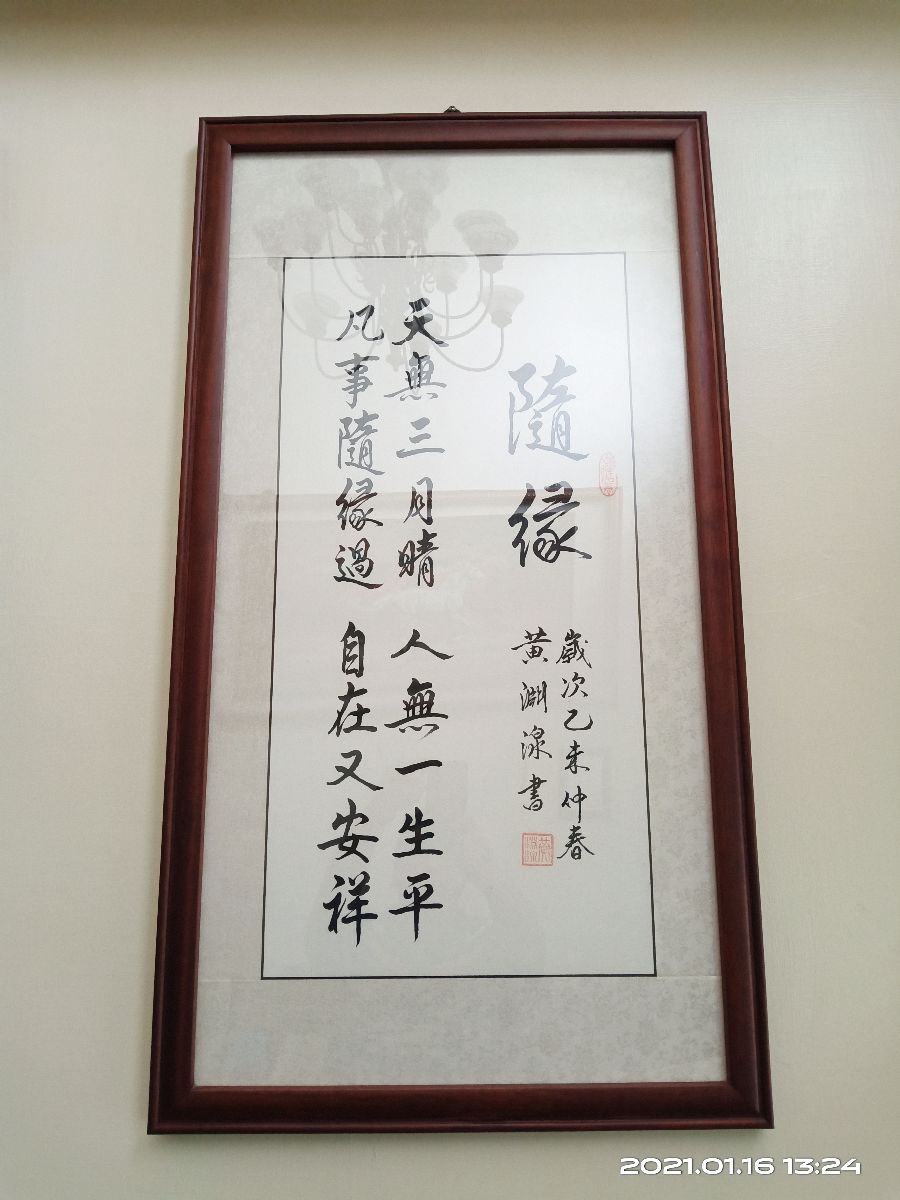 隨緣
歲次乙未仲春
黃淵湶書
天無三月晴 人無一生平
凡事隨緣過 自在又安祥
2021.01.16 13:24